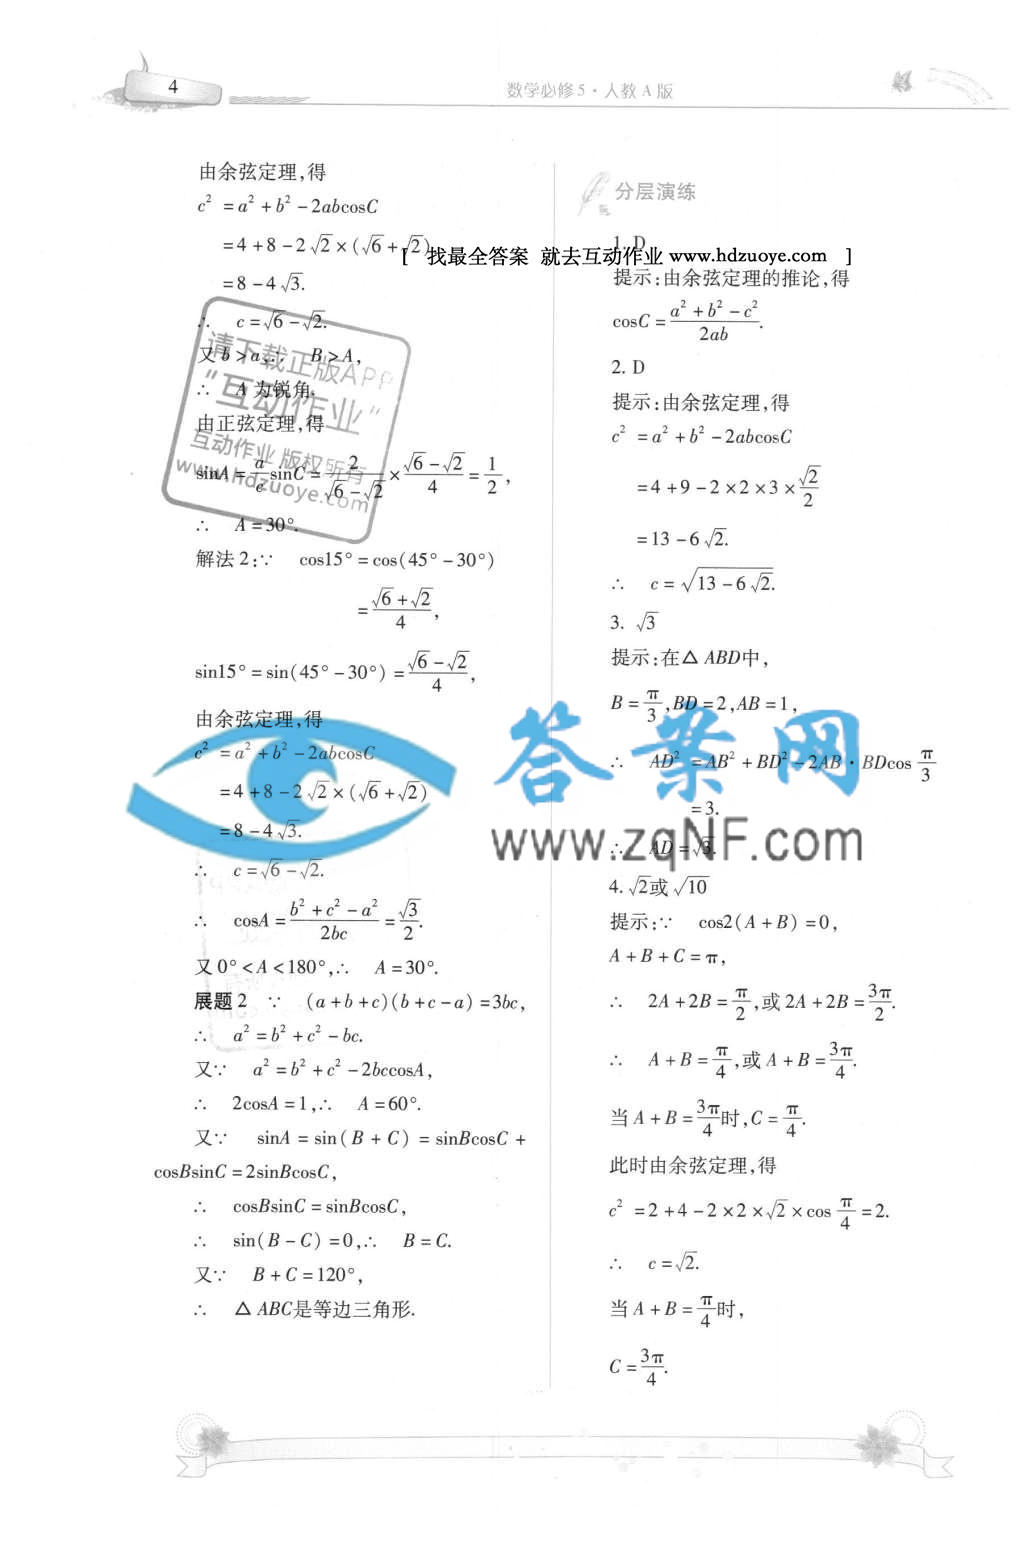 4
数学必修5·人教A版
由余弦定理,得
c² =a²+b²-2abcosC
=4+8-2√2×(√6+√2)
=8-4√3.
∴ c=√6-√2.
又b>a,∴ B>A,
∴ A为锐角.
由正弦定理,得
sinA=a/c sinC=2/(√6-√2)×(√6-√2)/4=1/2,
∴ A=30°.
解法2:∵ cos15°=cos(45°-30°)
=(√6+√2)/4,
sin15°=sin(45°-30°)=(√6-√2)/4,
由余弦定理,得
c² =a²+b²-2abcosC
=4+8-2√2×(√6+√2)
=8-4√3.
∴ c=√6-√2.
∴ cosA=(b²+c²-a²)/2bc=√3/2.
又0°<A<180°,∴ A=30°.
展题2 ∵ (a+b+c)(b+c-a)=3bc,
∴ a²=b²+c²-bc.
又∵ a²=b²+c²-2bccosA,
∴ 2cosA=1,∴ A=60°.
又∵ sinA=sin(B+C)=sinBcosC+
cosBsinC=2sinBcosC,
∴ cosBsinC=sinBcosC,
∴ sin(B-C)=0,∴ B=C.
又∵ B+C=120°,
∴ △ABC是等边三角形.
分层演练
1. D
[ 找最全答案 就去互动作业 www.hdzuoye.com ]
提示:由余弦定理的推论,得
cosC=(a²+b²-c²)/2ab.
2. D
提示:由余弦定理,得
c² =a²+b²-2abcosC
=4+9-2×2×3×√2/2
=13-6√2.
∴ c=√(13-6√2).
3. √3
提示:在△ABD中,
B=π/3,BD=2,AB=1,
∴ AD²=AB²+BD²-2AB·BDcos π/3
=3.
∴ AD=√3.
4.√2或√10
提示:∵ cos2(A+B)=0,
A+B+C=π,
∴ 2A+2B=π/2,或2A+2B=3π/2.
∴ A+B=π/4,或A+B=3π/4.
当A+B=3π/4时,C=π/4.
此时由余弦定理,得
c² =2+4-2×2×√2×cos π/4=2.
∴ c=√2.
当A+B=π/4时,
C=3π/4.
请下载正版APP
“互动作业”
互动作业 版权所有
www.hdzuoye.com
答案网
www.zqNF.com